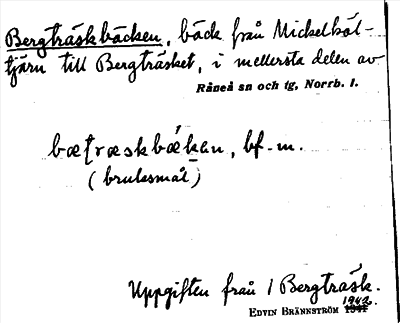 Bergträskbäcken, bäck från Mickelhöl-
tjärn till Bergträsket, i mellersta delen av
Råneå sn och tg, Norrb. l.
bætræskbækan, bf. m.
(bruksmål)
Uppgiften från 1 Bergträsk.
1942.
EDVIN BRÄNNSTRÖM 1941